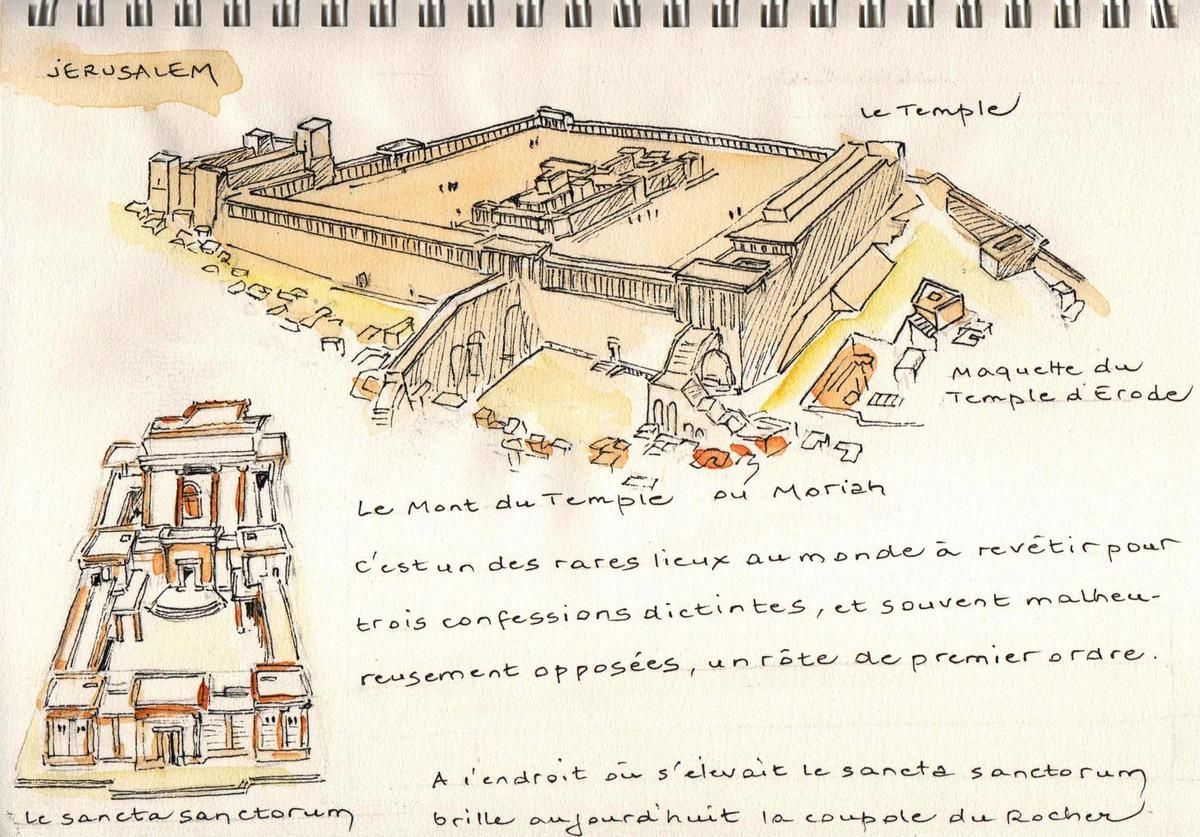 JERUSALEM
Le Temple
Maquette du
Temple d'Erode
Le Mont du Temple ou Moriah
c'est un des rares lieux au monde à revêtir pour
trois confessions dictintes, et souvent malheu-
reusement opposées, un rôte de premier ordre.
A l'endroit où s'élevait le sancta sanctorum
brille aujourd'huit la coupole du Rocher
Le sancta sanctorum